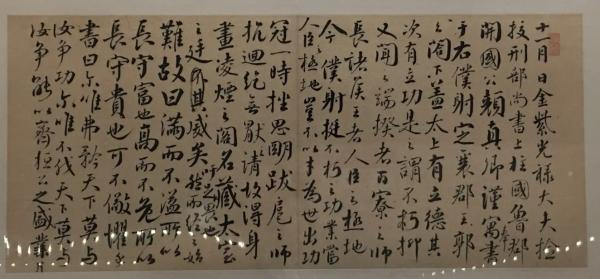 十一月日金紫光祿大夫檢
挍刑部尚書上柱國魯郡
開國公顏真卿謹寓書
于右僕射定襄郡王郭
公閣下蓋太上有立德其
次有立功是之謂不朽抑
又聞之端揆者百寮之師
長諸侯王者人臣之極地
今僕射挺不朽之功業當
人臣之極地豈不以才為世出功
冠一時挫思明跋扈之師
抗迴紇無猒之請故得身
畫凌煙之閣名藏太室
之廷矣然而終之始
難故曰滿而不溢所以
長守富也高而不危所以
長守貴也可不儆懼乎
書曰尓唯弗矜天下莫與
汝爭功尓唯不伐天下莫與
汝爭能以齊桓公之盛業片